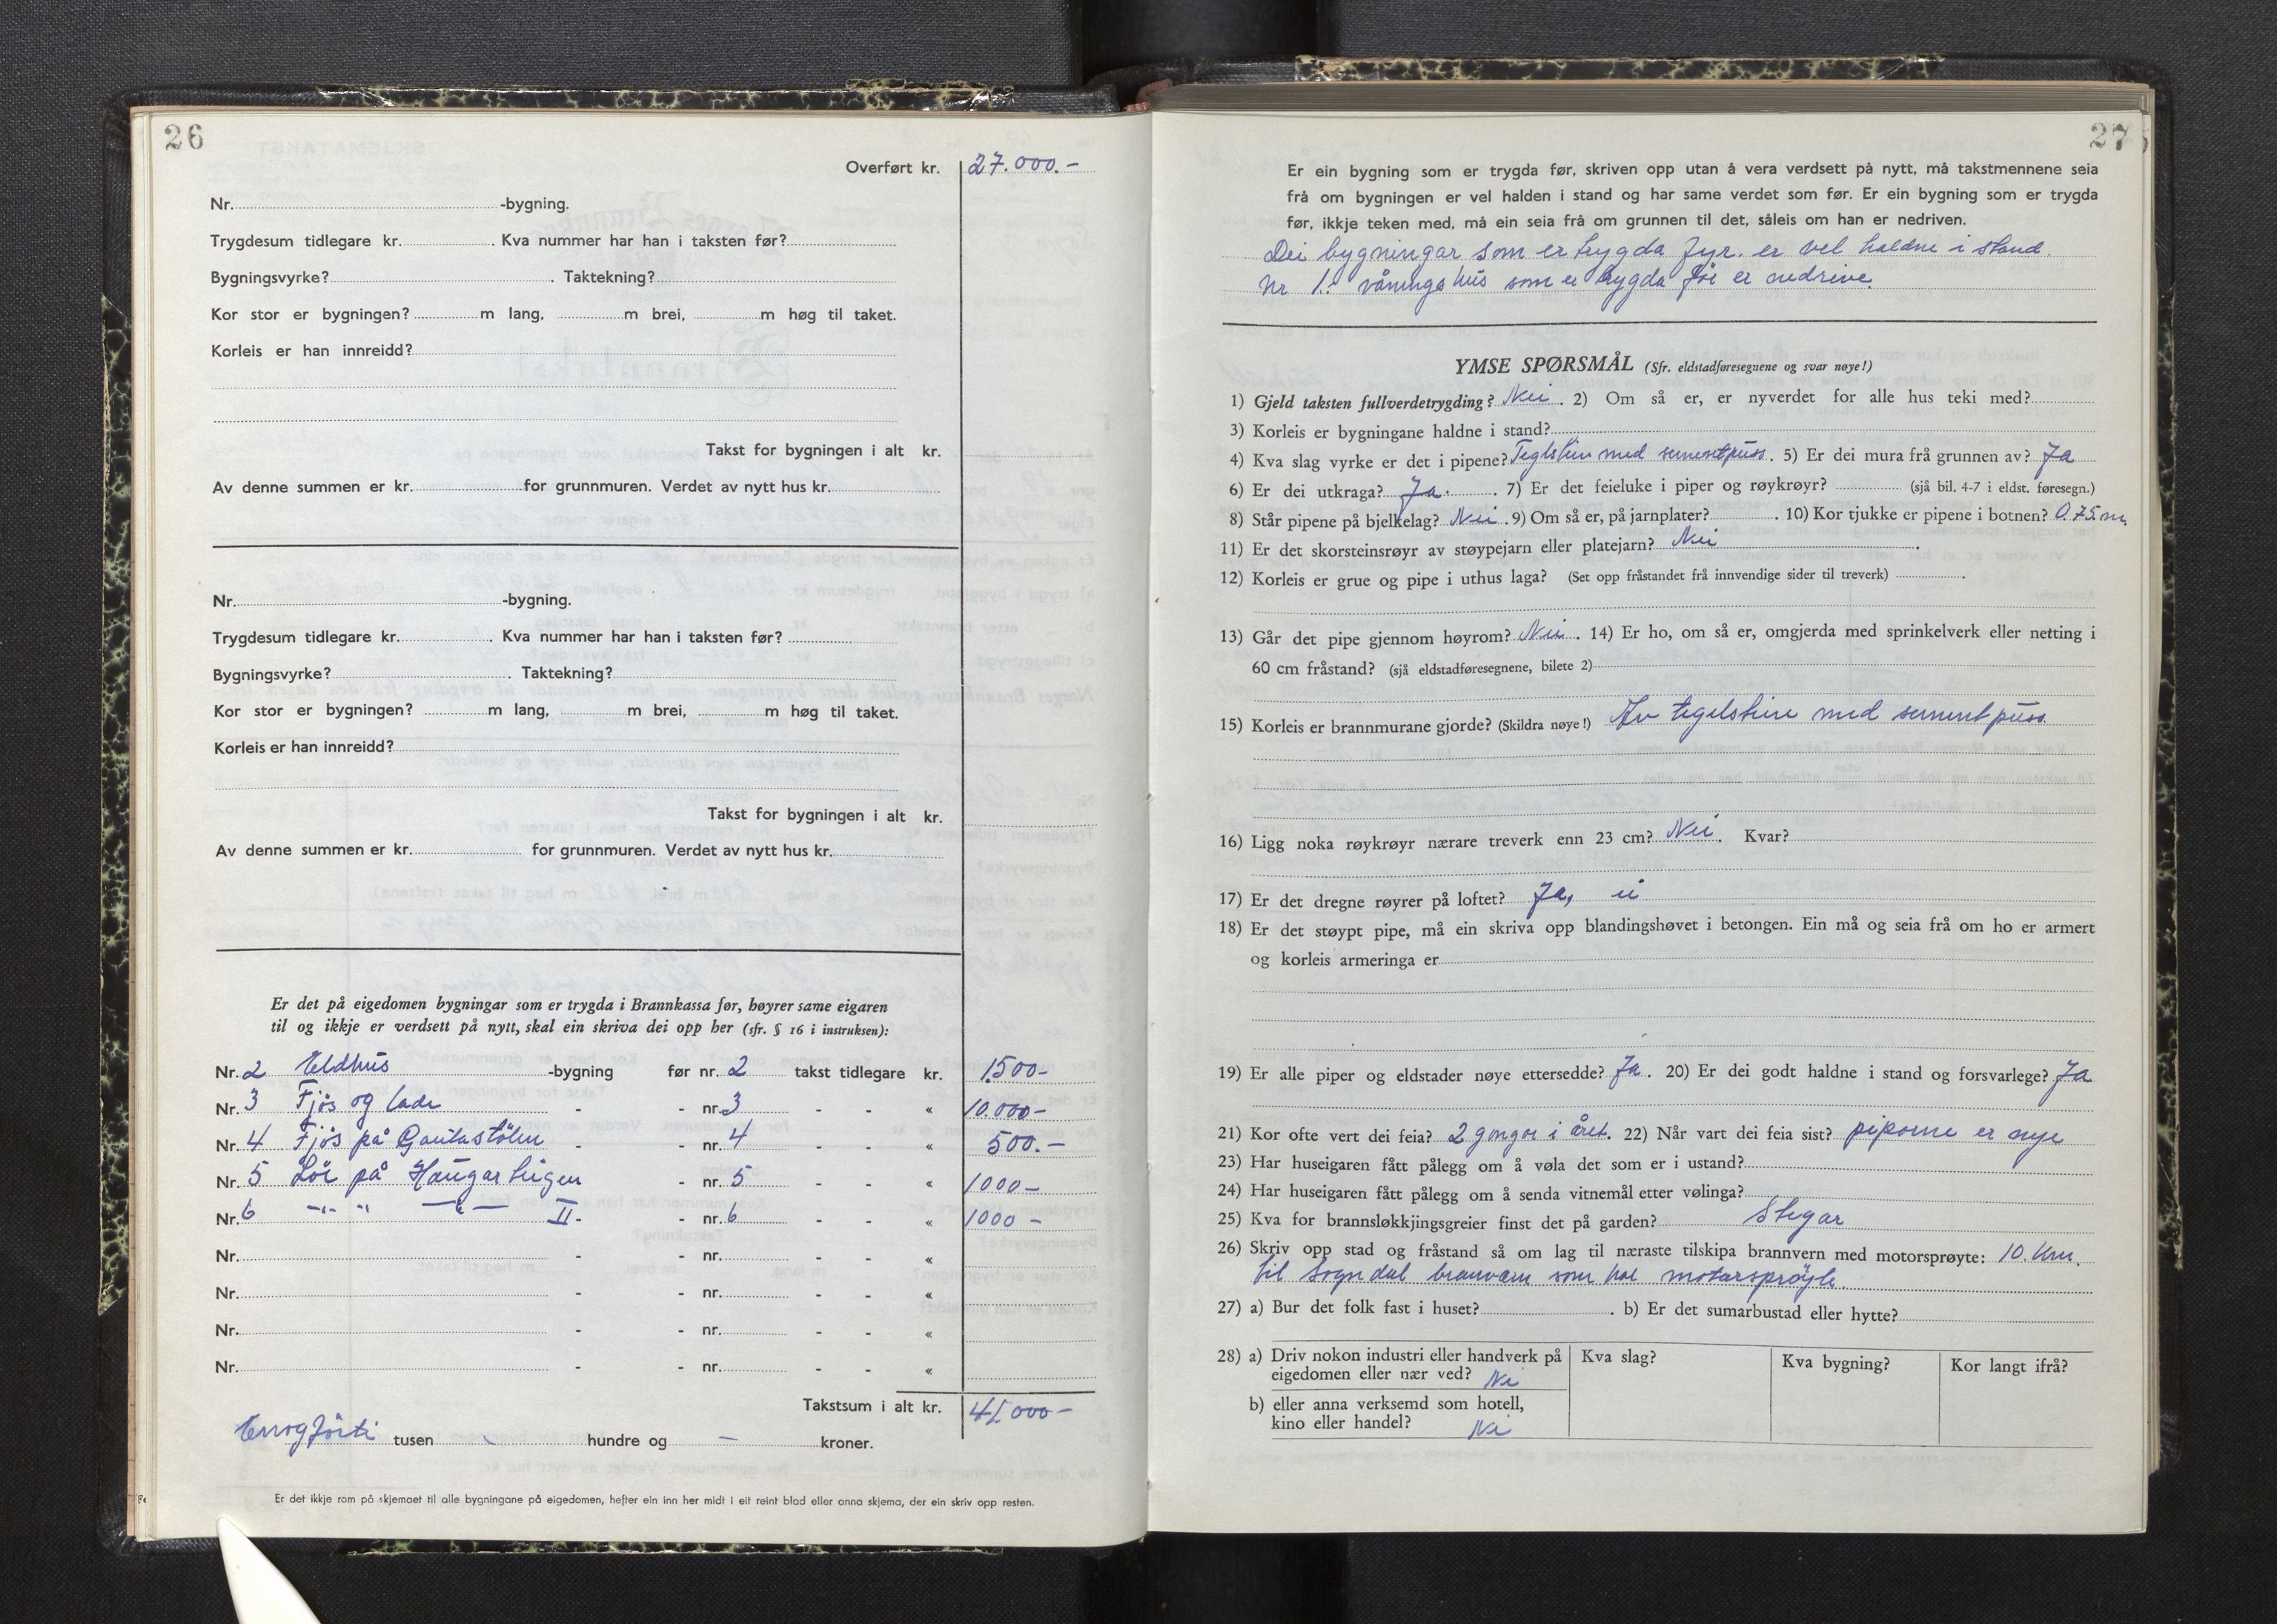 26
Overført kr. 27.000.-
Nr. -bygning.
Trygdesum tidlegare kr. Kva nummer har han i taksten før?
Bygningsvyrke? Taktekning?
Kor stor er bygningen? m lang, m brei, m høg til taket.
Korleis er han innreidd?
Takst for bygningen i alt kr.
Av denne summen er kr. for grunnmuren. Verdet av nytt hus kr.
Nr. -bygning.
Trygdesum tidlegare kr. Kva nummer har han i taksten før?
Bygningsvyrke? Taktekning?
Kor stor er bygningen? m lang, m brei, m høg til taket.
Korleis er han innreidd?
Takst for bygningen i alt kr.
Av denne summen er kr. for grunnmuren. Verdet av nytt hus kr.
Er det på eigedomen bygningar som er trygda i Brannkassa før, høyrer same eigaren
til og ikkje er verdsett på nytt, skal ein skriva dei opp her (sfr. § 16 i instruksen):
Nr. 2 Eldhus -bygning før nr. 2 takst tidlegare kr. 1500-
Nr. 3 Fjös og lade - - nr. 3 - - « 10.000-
Nr. 4 Fjös på Gautastölen - - nr. 4 - - « 500.-
Nr. 5 Löe på Haugarteigen - nr. 5 - - « 1000-
Nr. 6 -"- " -"- II - - nr. 6 - - « 1000 -
Nr. - - nr. - - «
Nr. - - nr. - - «
Nr. - - nr. - - «
Nr. - - nr. - - «
Takstsum i alt kr. 41.000-
Einogförti tusen - hundre og - kroner.
Er det ikkje rom på skjemaet til alle bygningane på eigedomen, hefter ein inn her midt i eit reint blad eller anna skjema, der ein skriv opp resten.
27
Er ein bygning som er trygda før, skriven opp utan å vera verdsett på nytt, må takstmennene seia
frå om bygningen er vel halden i stand og har same verdet som før. Er ein bygning som er trygda
før, ikkje teken med, må ein seia frå om grunnen til det, såleis om han er nedriven.
Dei bygningar som er trygda fyr. er vel haldne i stand.
Nr 1. våningshus som er trygda för er nedrive.
YMSE SPØRSMÅL (Sfr. eldstadføresegnene og svar nøye!)
1) Gjeld taksten fullverdetrygding? Nei. 2) Om så er, er nyverdet for alle hus teki med?
3) Korleis er bygningane haldne i stand?
4) Kva slag vyrke er det i pipene? Teglstein med sementpuss. 5) Er dei mura frå grunnen av? Ja
6) Er dei utkraga? Ja. 7) Er det feieluke i piper og røykrøyr? (sjå bil. 4-7 i eldst. føresegn.)
8) Står pipene på bjelkelag? Nei. 9) Om så er, på jarnplater? 10) Kor tjukke er pipene i botnen? 0.75 m.
11) Er det skorsteinsrøyr av støypejarn eller platejarn? Nei
12) Korleis er grue og pipe i uthus laga? (Set opp fråstandet frå innvendige sider til treverk)
13) Går det pipe gjennom høyrom? Nei. 14) Er ho, om så er, omgjerda med sprinkelverk eller netting i
60 cm fråstand? (sjå eldstadføresegnene, bilete 2)
15) Korleis er brannmurane gjorde? (Skildra nøye!) Av tegelstein med sementpuss.
16) Ligg noka røykrøyr nærare treverk enn 23 cm? Nei. Kvar?
17) Er det dregne røyrer på loftet? Ja, ei
18) Er det støypt pipe, må ein skriva opp blandingshøvet i betongen. Ein må og seia frå om ho er armert
og korleis armeringa er
19) Er alle piper og eldstader nøye ettersedde? Ja. 20) Er dei godt haldne i stand og forsvarlege? Ja
21) Kor ofte vert dei feia? 2 gongor i året. 22) Når vart dei feia sist? piporne er nye
23) Har huseigaren fått pålegg om å vøla det som er i ustand?
24) Har huseigaren fått pålegg om å senda vitnemål etter vølinga?
25) Kva for brannsløkkjingsgreier finst det på garden? Stegar
26) Skriv opp stad og fråstand så om lag til næraste tilskipa brannvern med motorsprøyte: 10. km.
til Sogndal brannvern som har motorspröyte.
27) a) Bur det folk fast i huset? b) Er det sumarbustad eller hytte?
28) a) Driv nokon industri eller handverk på Kva slag? Kva bygning? Kor langt ifrå?
eigedomen eller nær ved? Nei
b) eller anna verksemd som hotell,
kino eller handel? Nei